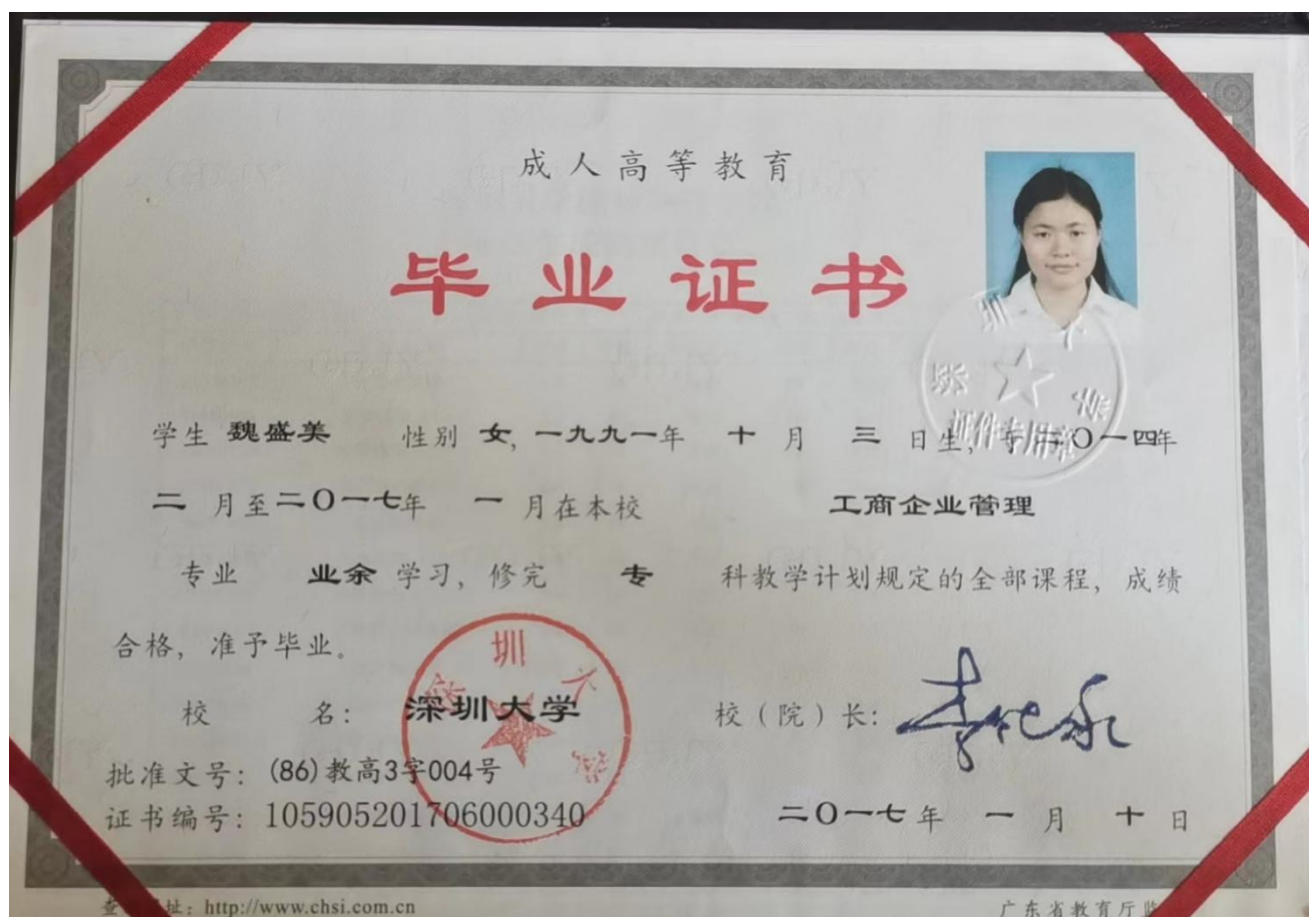 成人高等教育
毕业证书
学生 魏盛美 性别 女, 一九九一年 十 月 三 日生, 于二〇一四年
二 月至二〇一七年 一 月在本校 工商企业管理
专业 业余 学习, 修完 专 科教学计划规定的全部课程, 成绩
合格, 准予毕业。
校 名: 深圳大学 校(院)长: 李清泉
批准文号: (86)教高3字004号
证书编号: 105905201706000340 二〇一七年 一 月 十 日
http://www.chsi.com.cn 广东省教育厅
深圳大学
深圳大学
证件专用章